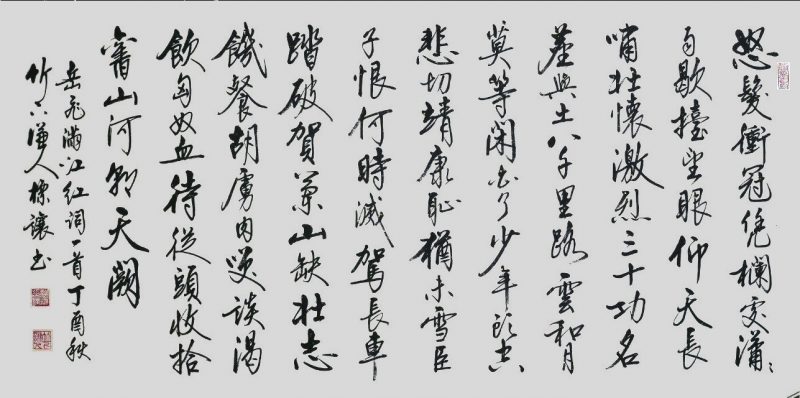 怒髮衝冠凭欄處瀟〻
雨歇擡望眼仰天長
嘯壯懷激烈三十功名
塵與土八千里路雲和月
莫等閑白了少年頭空
悲切靖康恥猶未雪臣
子恨何時滅駕長車
踏破賀蘭山缺壯志
饑餐胡虜肉笑談渴
飲匈奴血待從頭收拾
舊山河朝天闕
岳飛滿江紅词一首丁酉秋
竹下谦人標讓书